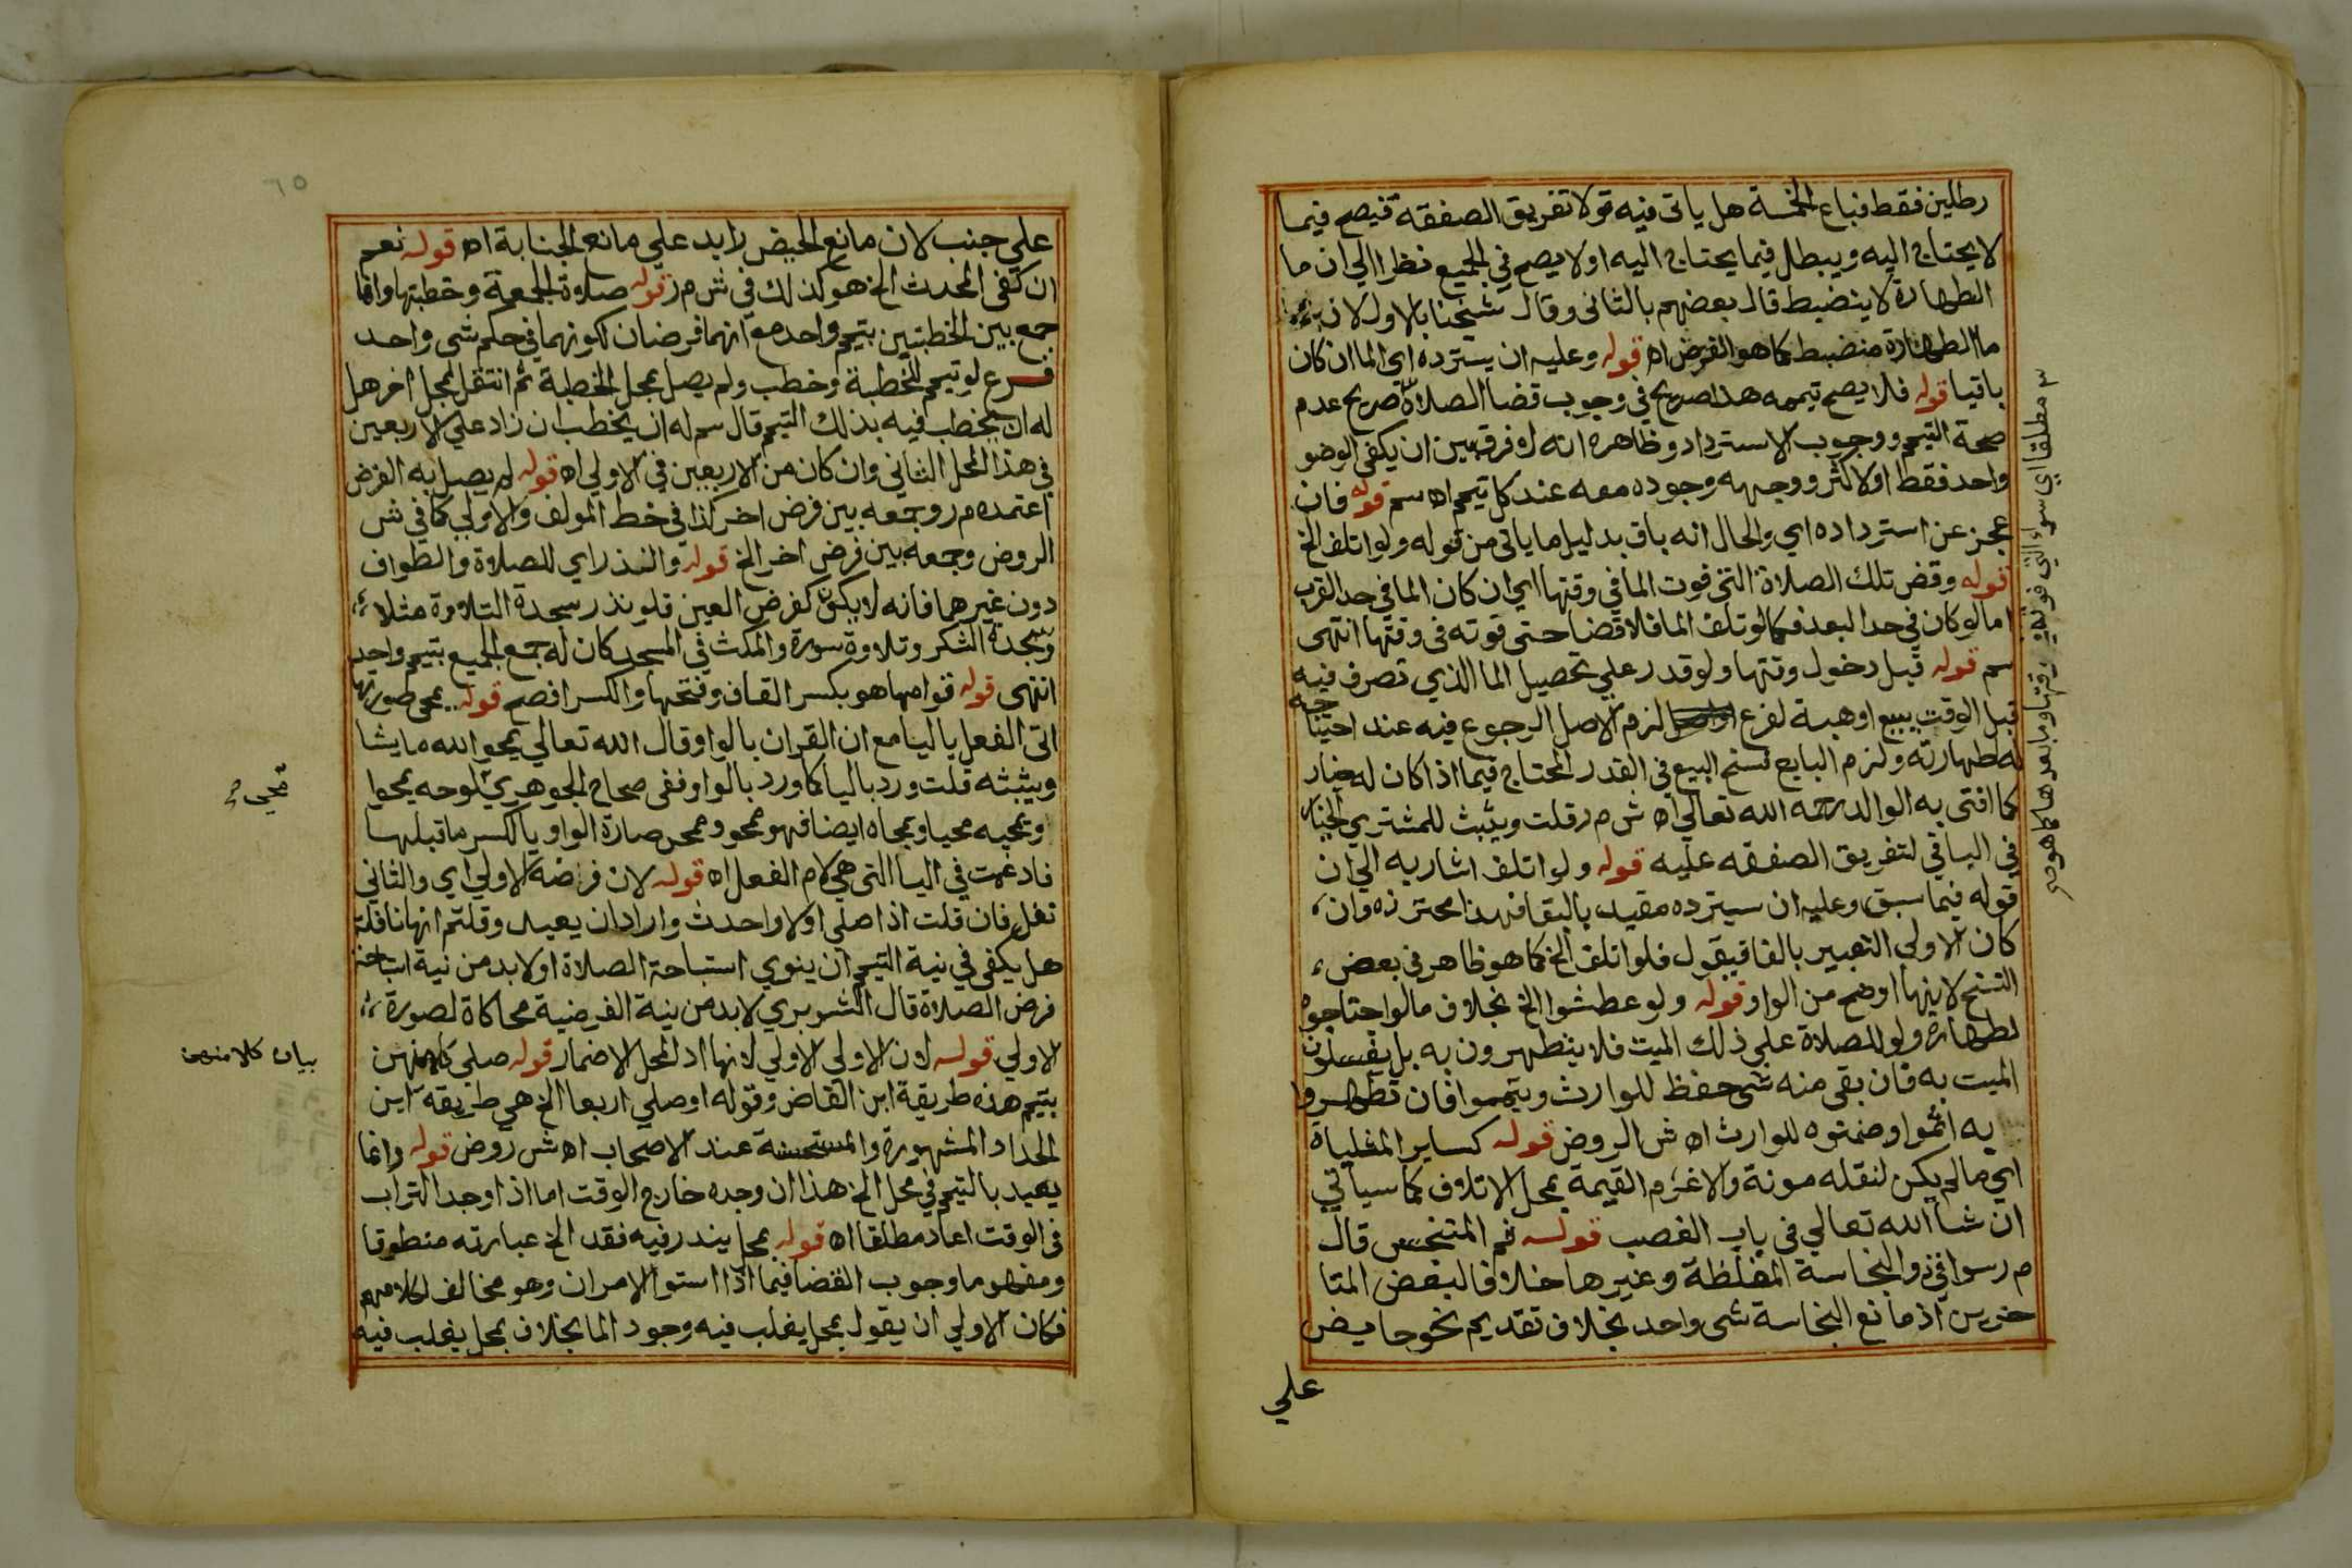 رطلين فقط فباع الخمسة هل ياتى فيه قولا تفريق الصفقة فيصح فيما
لا يحتاج اليه ويبطل فيما يحتاج اليه اولا يصح في الجميع نظرا الي ان ما
الطهارة لا ينضبط قال بعضهم بالثانى وقال شيخنا بالاول لان
ما الطهارة منضبط كما هو الفرض اه قوله وعليه ان يسترده اي الما ان كان
باقيا قوله فلا يصح تيممه هذا صريح في وجوب قضا الصلاة صريح عدم
صحة التيمم ووجوب الاسترداد وظاهره انه لا فرق بين ان يكفى الوضو
واحد فقط او لاكثر ووجهه وجوده معه عند كل تيمم اه سم قوله فان
عجز عن استرداده اي والحال انه باق بدليل ما ياتى من قوله ولو اتلف الخ
قوله وقض تلك الصلاة التى فوت الما في وقتها اي ان كان الما في حد القرب
اما لو كان في حد البعد فكما لو تلف الما فلا قضا حتى فوته فى وقتها انتهى
سم قوله قبل دخول وقتها ولو قدر علي تحصيل الما الذي تصرف فيه
قبل الوقت ببيع او هبة لفرع لزم الاصل الرجوع فيه عند احتيا جه
له لطهارته ولزم البايع فسخ البيع في القدر المحتاج فيما اذا كان له خيار
كما افتى به الوالد رحمه الله تعالي اه ش م ر قلت ويثبت للمشتري الخيار
في الباقي لتفريق الصفقه عليه قوله ولو اتلف اشار به الي ان
قوله فيما سبق وعليه ان سيترده مقيد بالبقا فهذا محترزه وان
كان الاولي التعبير بالفا فيقول فلو اتلف الخ كما هو ظاهر فى بعض
النسخ لانها اوضح من الواو قوله ولو عطشوا الخ بخلاف ما لو احتاجوه
لطهارة ولو للصلاة علي ذلك الميت فلا يتطهرون به بل يغسلون
الميت به فان بقى منه شى حفظ للوارث ويتمموا فان تطهروا
به اثموا وضمنوه للوارث اه ش الروض قوله كساير المثليات
اي ما لم يكن لنقله مونة والا غرم القيمة بمحل الاتلاف كما سياتي
ان شا الله تعالي فى باب الغصب قوله ثم المتنجس قال
م ر سوا فى ذو النجاسة المغلظة وغيرها خلافا لبعض المتا
خرين اذ مانع النجاسة شى واحد بخلاف تقديم نحو حايض
علي
٦٥
علي جنب لان مانع الحيض زايد علي مانع الجنابة اه قوله نعم
ان كفى المحدث الخ هو كذلك في ش م ر قوله صلاة الجمعة وخطبتها وانما
جمع بين الخطبتين بتيمم واحد مع انهما فرضان لكونهما في حكم شى واحد
فرع لو تيمم للخطبة وخطب ولم يصل بمحل الخطبة ثم انتقل لمحل اخر هل
له ان يخطب فيه بذلك التيمم قال سم له ان يخطب ان زاد علي الاربعين
في هذا المحل الثاني وان كان من الاربعين في الاولي اه قوله لم يصل به الفرض
اعتمده م ر وجمعه بين فرض اخر كذا في خط المولف والاولي كما في ش
الروض وجمعه بين فرض اخر الخ قوله والنذر اي للصلاة والطواف
دون غيرهما فانه لا يكون كفرض العين فلو نذر سجدة التلاوة مثلا
وسجدة الشكر وتلاوة سورة والمكث في المسجد كان له جمع الجميع بتيمم واحد
انتهى قوله قوامها هو بكسر القاف وفتحها والكسر افصح قوله يمحى صورتها
اتى الفعل باليا مع ان القران بالواو قال الله تعالي يمحوا الله ما يشا
ويثبته قلت ورد باليا كما ورد بالواو ففى صحاح الجوهري لوحه يمحوا
ويمحيه محيا ويمحاه ايضا فهو ممحو وممحى صارة الواو يا لكسر ما قبلها
فادغمت في اليا التى هي لام الفعل اه قوله لان فرضه الاولي اي والثاني
نفل فان قلت اذا صلي اولا واحدث واراد ان يعيد وقلتم انها نافلة
هل يكفى في نية التيمم ان ينوي استباحة الصلاة اولا بد من نية استباحة
فرض الصلاة قال الشوبري لا بد من نية الفرضية محاكاة لصورة
الاولي قوله لان الاولي الاولي لانها اذ المحل الاضمار قوله صلي كلا منهن
بتيمم هذه طريقة ابن القاص وقوله او صلي اربعا الخ هي طريقة ابن
الحداد المشهورة والمستحسنة عند الاصحاب اه ش روض قوله وانما
يعيد بالتيمم في محل الخ هذا ان وجده خارج الوقت اما اذا وجد التراب
فى الوقت اعاد مطلقا اه قوله بمحل يندر فيه فقد الخ عبارته منطوقا
ومفهوما وجوب القضا فيما اذا استوا الامران وهو مخالف لكلامهم
فكان الاولي ان يقول بمحل يغلب فيه وجود الما بخلاف بمحل يغلب فيه
بيان كلا منهن